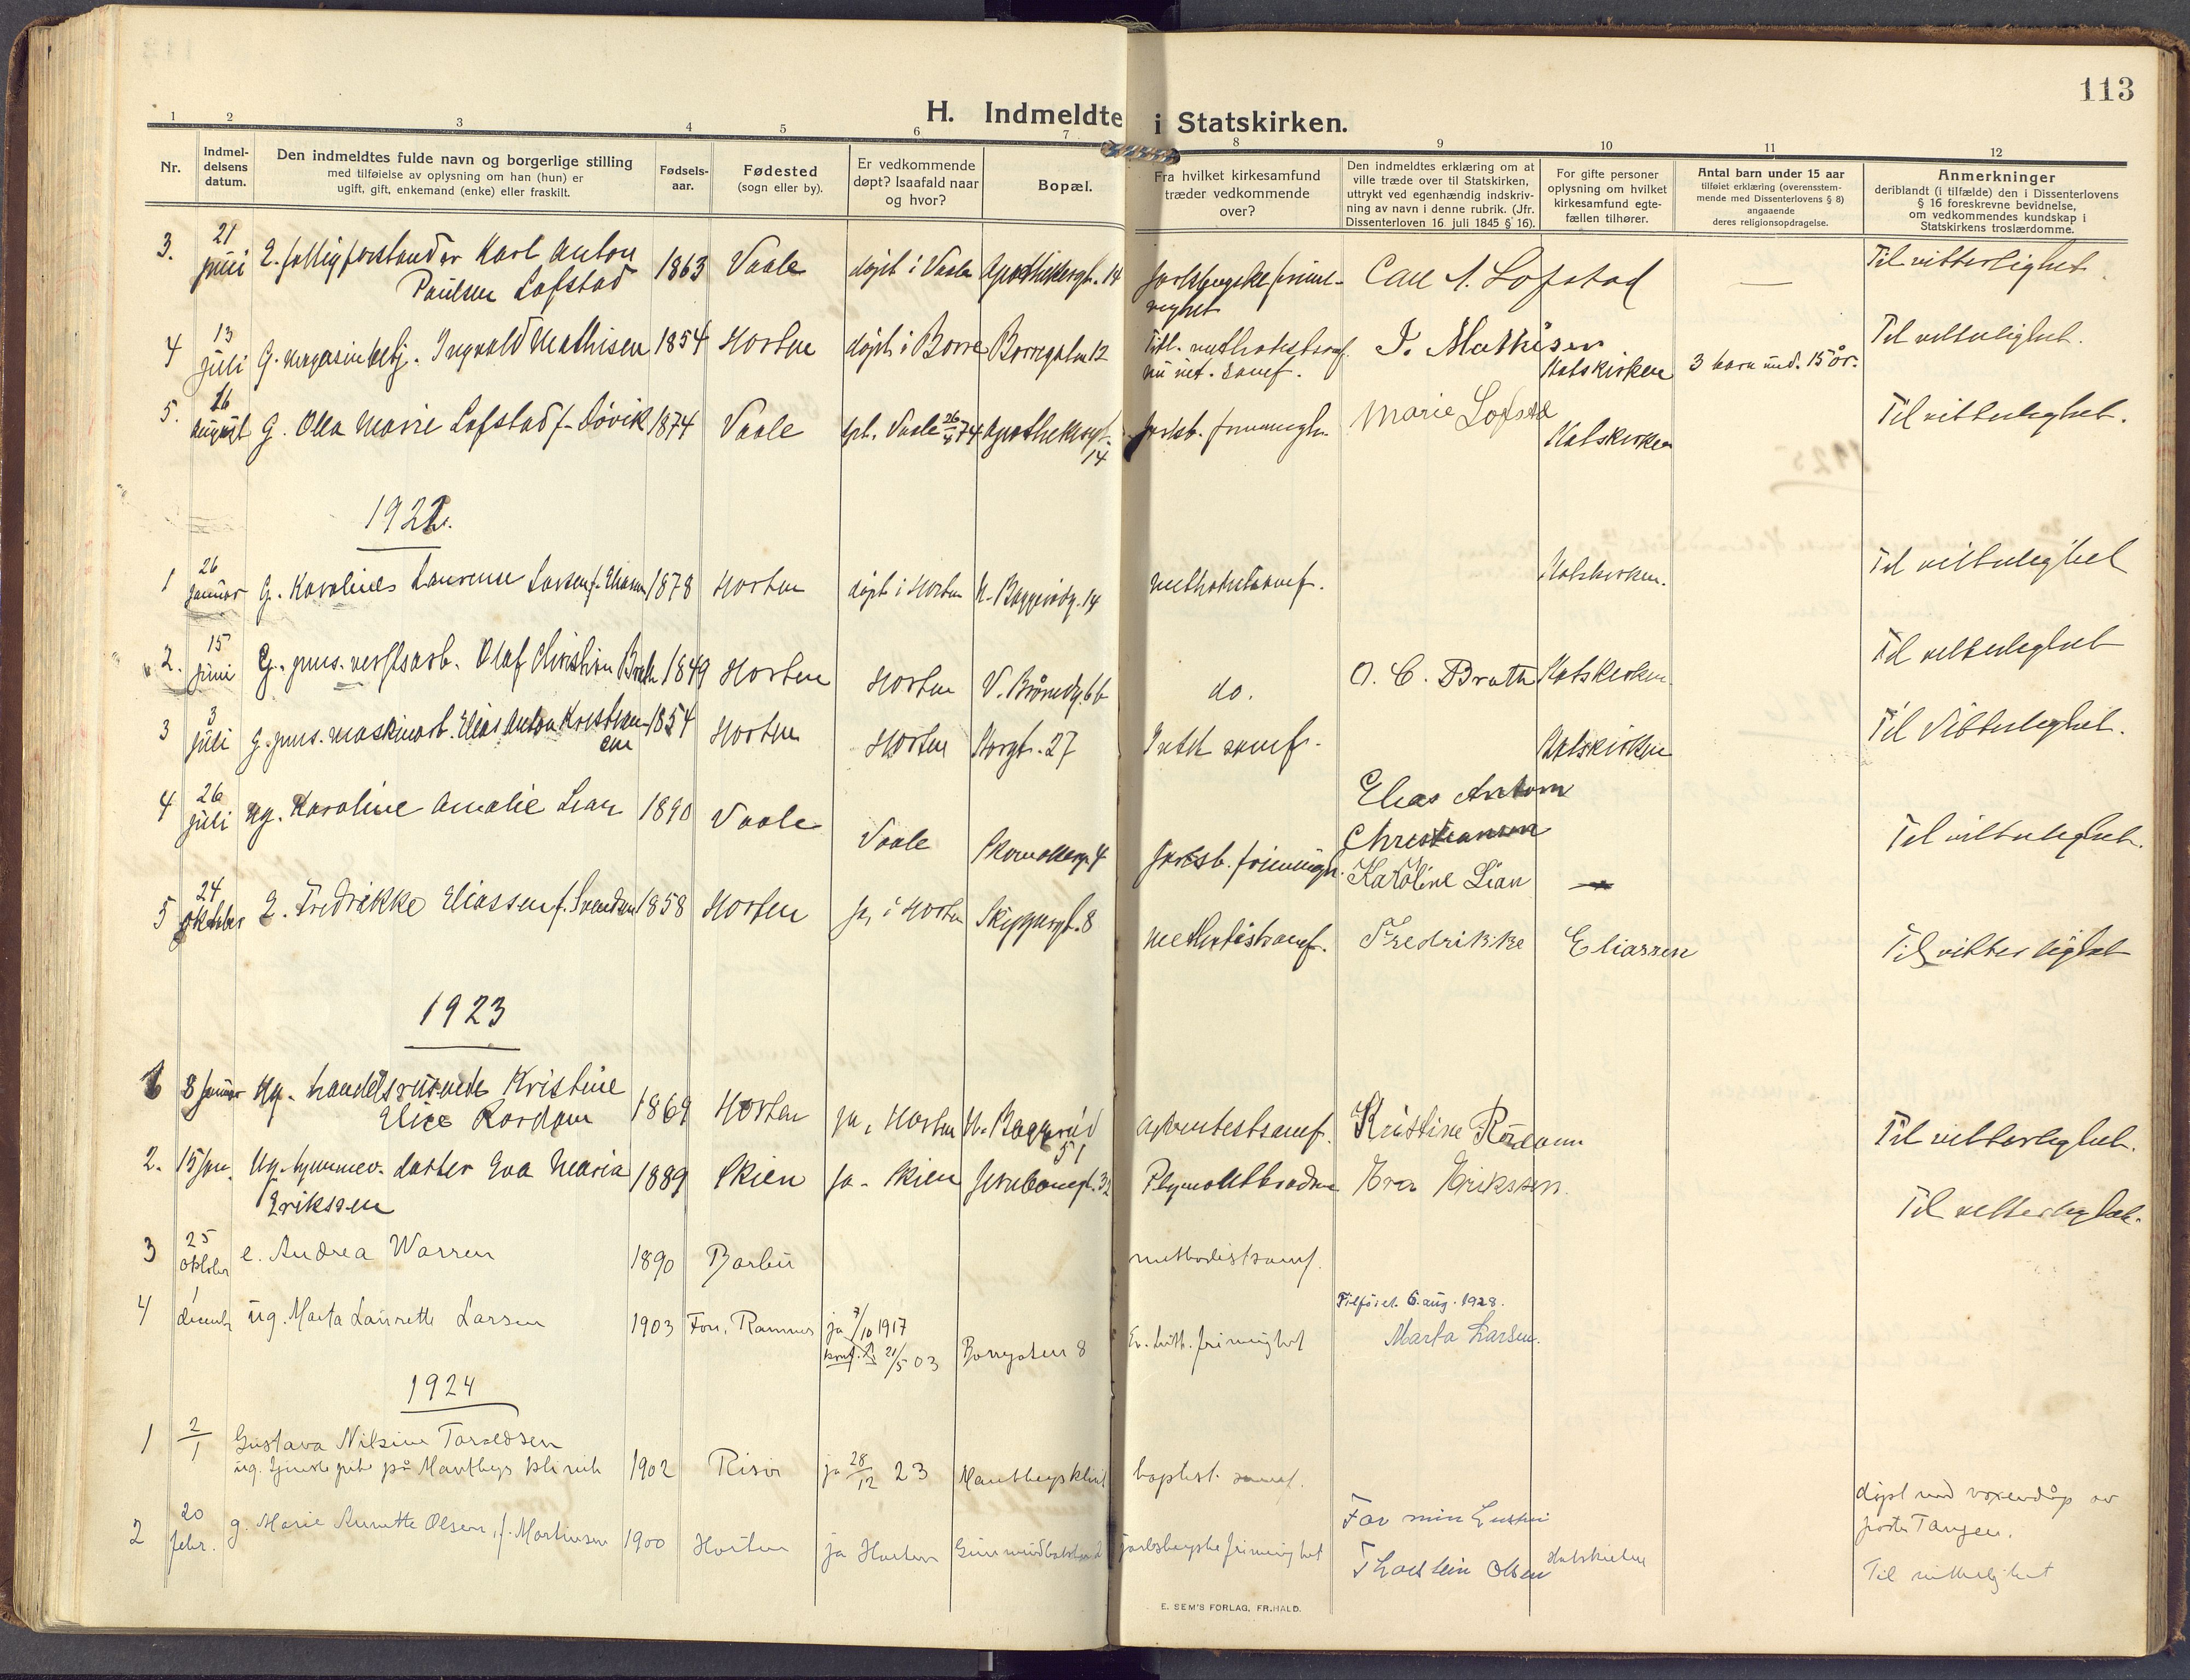 113
H. Indmeldte i Statskirken.
1 2 3 4 5 6 7 8 9 10 11 12
Nr.
Indmel-
delsens
datum.
Den indmeldtes fulde navn og borgerlige stilling
med tilføielse av oplysning om han (hun) er
ugift, gift, enkemand (enke) eller fraskilt.
Fødsels-
aar.
Fødested
(sogn eller by).
Er vedkommende
døpt? Isaafald naar
og hvor?
Bopæl.
Fra hvilket kirkesamfund
træder vedkommende
over?
Den indmeldtes erklæring om at
ville træde over til Statskirken,
uttrykt ved egenhændig indskriv-
ning av navn i denne rubrik. (Jfr.
Dissenterloven 16 juli 1845 § 16).
For gifte personer
oplysning om hvilket
kirkesamfund egte-
fællen tilhører.
Antal barn under 15 aar
tilføiet erklæring (overensstem-
mende med Dissenterlovens § 8)
angaaende
deres religionsopdragelse.
Anmerkninger
deriblandt (i tilfælde) den i Dissenterlovens
§ 16 foreskrevne bevidnelse,
om vedkommendes kundskap i
Statskirkens troslærdomme.
3. 21 juni E. fattigforstander Karl Anton
Paulsen Lofstad 1863 Vaale døpt i Vaale Apothekergt. 14 Carl A. Lofstad — Til vitterlighet.
4 13 juli G. Ingvald Mathisen 1854 Horten døpt i Borre Borregaten 12 I. Mathisen Statskirken 3 barn und. 15 år. Til vitterlighet.
5. 16 august G. Marie Lofstad f. Søvik 1874 Vaale Vaale 74 Apothekergt.
14 Marie Lofstad Statskirken Til vitterlighet.
1922.
1 26 januar G. Laurense Larsen f. 1878 Horten døpt i Horten methodistsamf. Statskirken. Til vitterlighet
2. 15 juni G. pens. verftsarb. Olaf Christian Brath 1849 Horten Horten do. O. C. Brath Statskirken. Til vitterlighet
3 3 juli G. pens. maskinarb. Elias Anton Kristian-
sen 1854 Horten Horten Storgt. 27 Luth samf. Statskirken Til vitterlighet.
Elias Anton
Christiansen
4 26 juli ug. Karoline Amalie Lian 1890 Vaale Vaale Jarlsb. frimenigh. Karoline Lian — Til vitterlighet.
5 24 oktober E. Fredrikke Eliassen f. Svendsen 1858 Horten ja, i Horten Skippergt. 8 methodistsamf. Fredrikke Eliassen Til vitterlighet
1923
8 januar ug. Kristine
Rordam 1869 Horten ja, Horten
51 adventistsamf. Kristine Rördam Til vitterlighet.
2. 15 jan. ug. Eva Maria
Erikssen 1889 Skien ja - Skien Jernbanegt. 32 Eva Erikssen. Til vitterlighet.
3 25 oktober e. Andrea Warren 1890 Barbu methodistsamf.
4 1 decemb ug. Marta Laurette Larsen 1903 Fon, Ramnes ja 7/10 1917
21/5 03 Borregaten 8 Ev. luth. frimenighet
Tilføiet 6. aug. 1928.
Marta Larsen.
1924
1 2/1 Gustava Nilsine Taraldsen
ug. på Mantheys klinik 1902 Risør ja 28/12 23 Mantheys klinik baptist. samf. døpt med voxendåp av
Tangen.
2 20 febr. g. Marie Annette Olsen, f. Martinsen 1900 Horten ja Horten jarlsbergske frimenighet
For min hustru
Thorstein Olsen Statskirken Til vitterlighet
E. SEM'S FORLAG, FR.HALD.